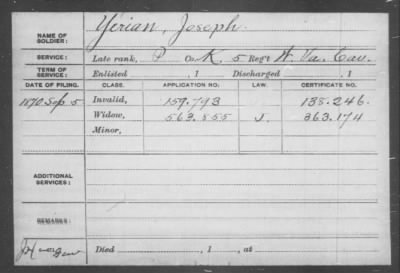 NAME OF SOLDIER: Yerian, Joseph.
SERVICE: Late rank, P Co. K, 5 Reg't W. Va. Cav.
TERM OF SERVICE: Enlisted , 1 Discharged , 1
DATE OF FILING. CLASS. APPLICATION NO. LAW. CERTIFICATE NO.
1870 Sep 5 Invalid, 159.793 135.246.
Widow, 563.555 J. 363.174
Minor,
ADDITIONAL SERVICES:
REMARKS:
Died , 1 , at